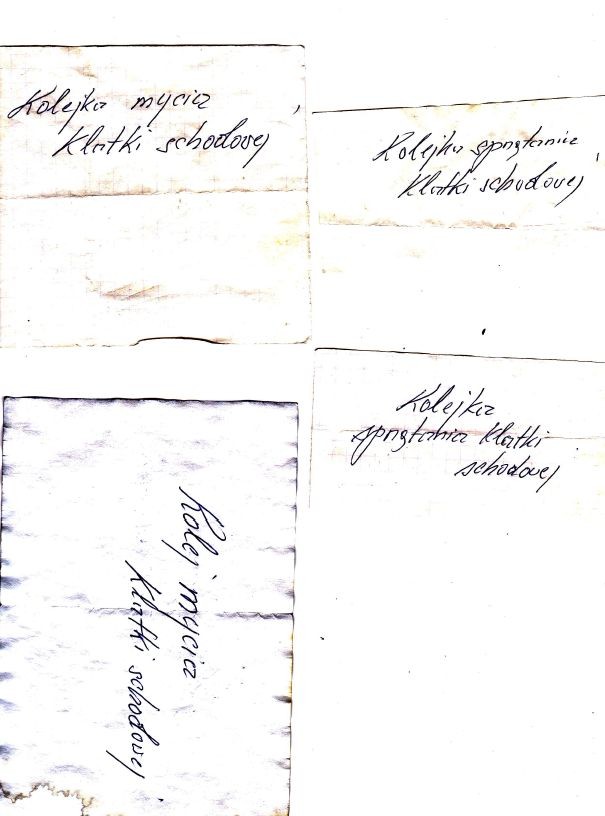 Kolejka mycia
Klatki schodowej
Kolejka sprzątania
Klatki schodowej
Kolejka
sprzątania Klatki
schodowej
Kolej mycia
Klatki schodowej